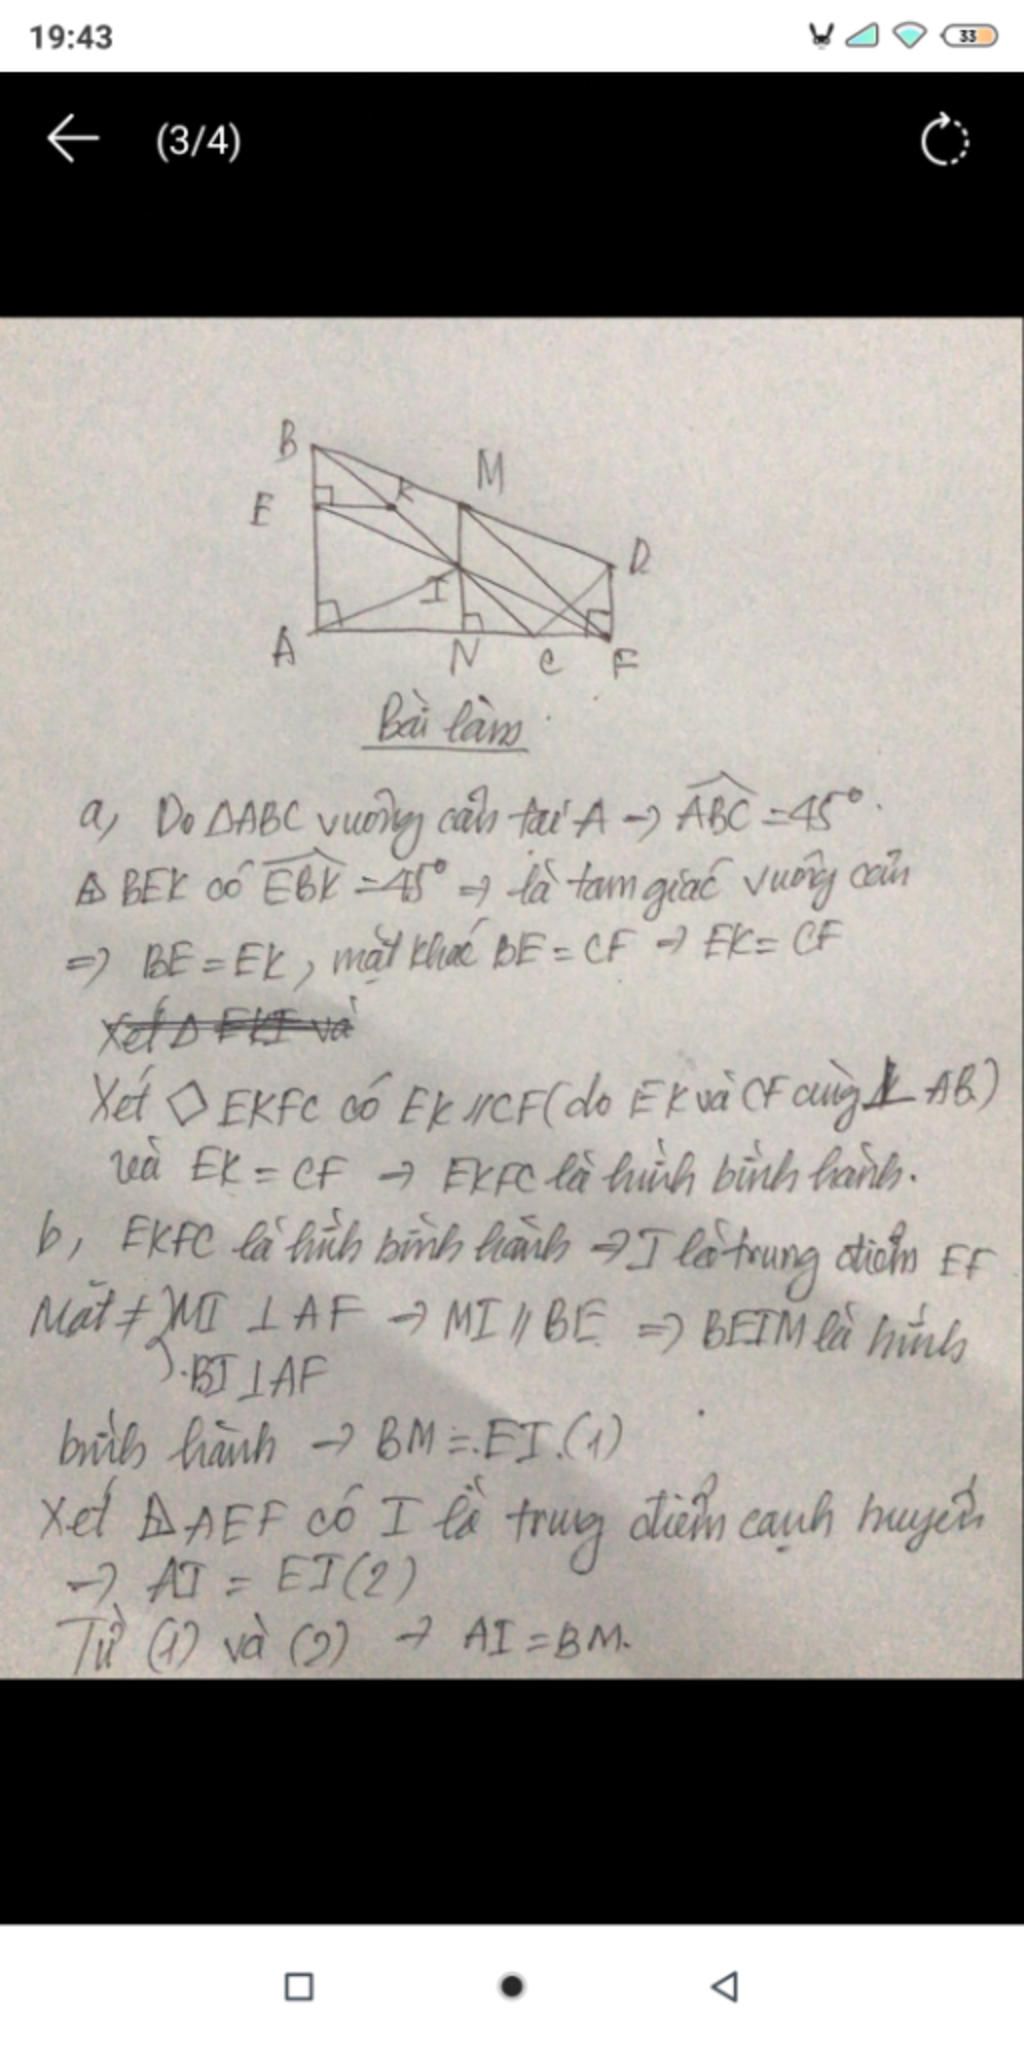 19:43
33
(3/4)
B
M
K
E
D
I
A
N
C
F
Bài làm
a, Do ΔABC vuông cân tại A → ABC = 45°.
Δ BEK có EBK = 45° ⇒ là tam giác vuông cân
⇒ BE = EK, mặt khác BE = CF ⇒ EK = CF
Xét Δ EKI và
Xét ◇ EKFC có EK // CF (do EK và CF cùng ⊥ AB)
và EK = CF → EKFC là hình bình hành.
b, EKFC là hình bình hành ⇒ I là trung điểm EF
Mặt ≠ MI ⊥ AF → MI // BE ⇒ BEIM là hình
BI ⊥ AF
bình hành → BM = EI. (1)
Xét Δ AEF có I là trung điểm cạnh huyền
→ AI = EI (2)
Từ (1) và (2) → AI = BM.